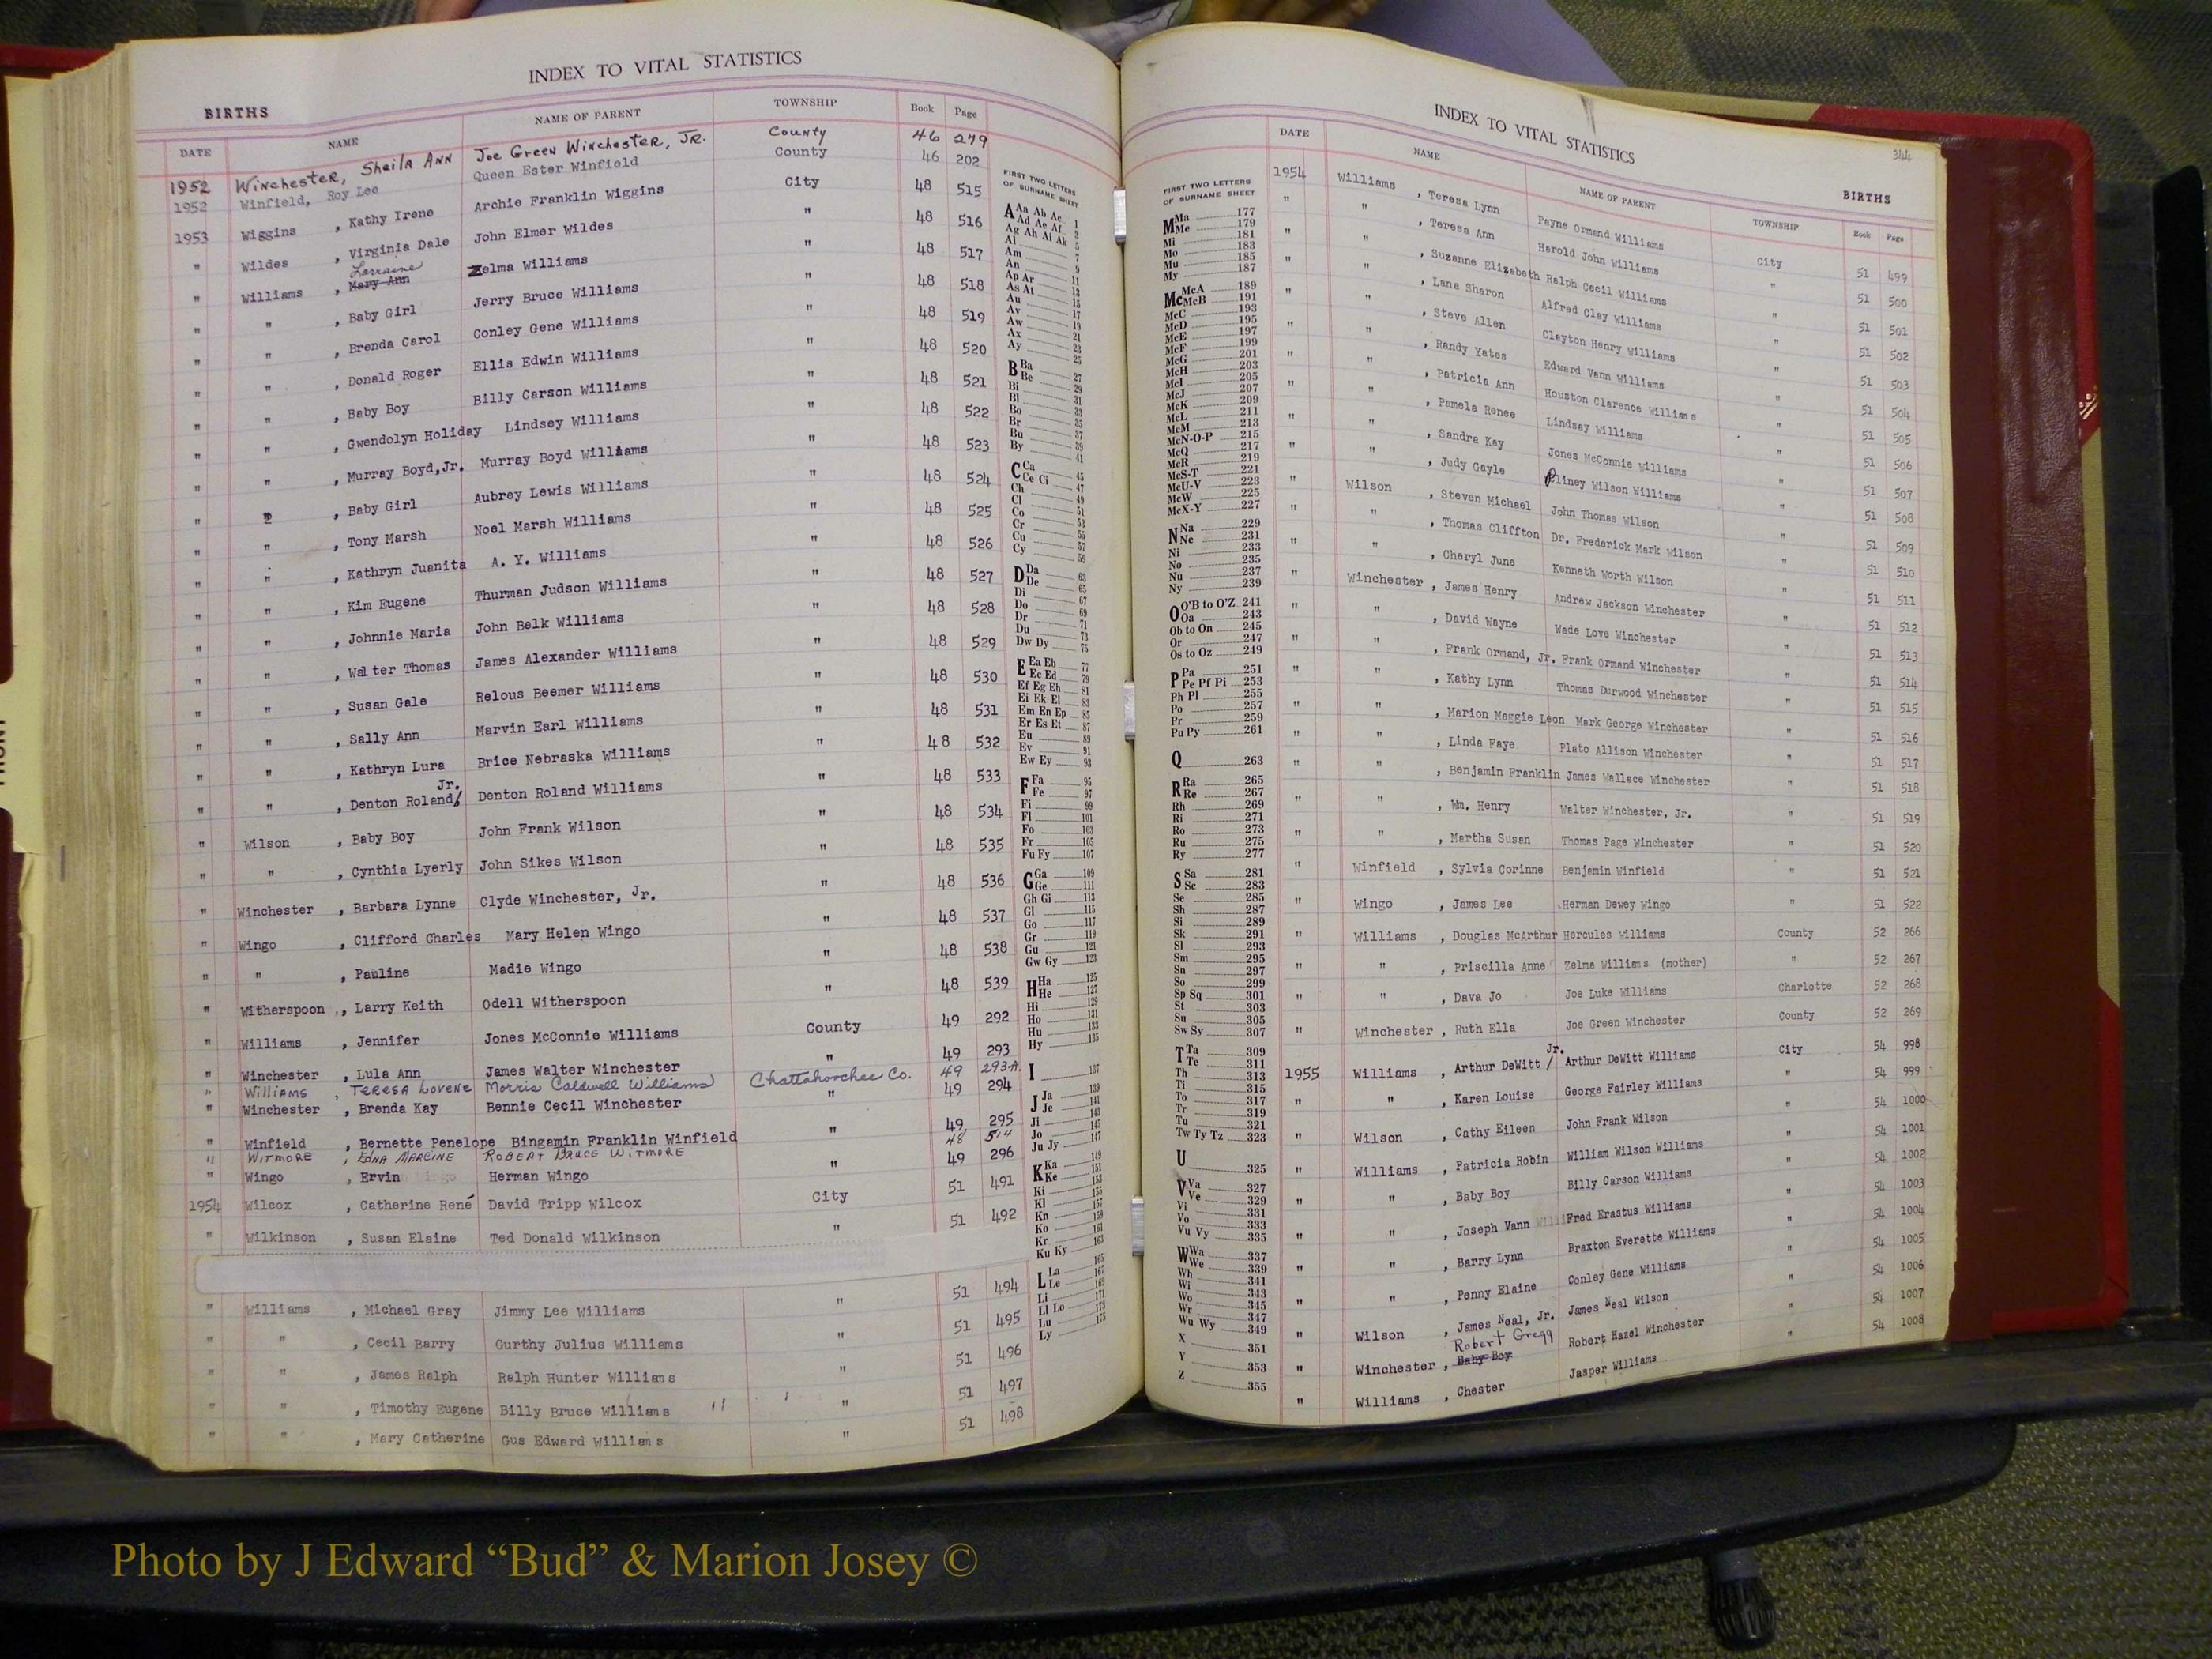 INDEX TO VITAL STATISTICS
BIRTHS
DATE NAME NAME OF PARENT TOWNSHIP Book Page
1952 Winchester, Sheila Ann Joe Green Winchester, Jr. County 46 279
1952 Winfield, Roy Lee Queen Ester Winfield County 46 202
1953 Wiggins , Kathy Irene Archie Franklin Wiggins City 48 515
" Wildes , Virginia Dale John Elmer Wildes " 48 516
Lorraine
" Williams , Mary Ann Zelma Williams " 48 517
" " , Baby Girl Jerry Bruce Williams " 48 518
" " , Brenda Carol Conley Gene Williams " 48 519
" " , Donald Roger Ellis Edwin Williams " 48 520
" " , Baby Boy Billy Carson Williams " 48 521
" " , Gwendolyn Holiday Lindsey Williams " 48 522
" " , Murray Boyd,Jr. Murray Boyd Williams " 48 523
" " , Baby Girl Aubrey Lewis Williams " 48 524
" " , Tony Marsh Noel Marsh Williams " 48 525
" " , Kathryn Juanita A. Y. Williams " 48 526
" " , Kim Eugene Thurman Judson Williams " 48 527
" " , Johnnie Maria John Belk Williams " 48 528
" " , Walter Thomas James Alexander Williams " 48 529
" " , Susan Gale Relous Beemer Williams " 48 530
" " , Sally Ann Marvin Earl Williams " 48 531
" " , Kathryn Lura Brice Nebraska Williams " 48 532
Jr.
" " , Denton Roland/ Denton Roland Williams " 48 533
" Wilson , Baby Boy John Frank Wilson " 48 534
" " , Cynthia Lyerly John Sikes Wilson " 48 535
" Winchester , Barbara Lynne Clyde Winchester, Jr. " 48 536
" Wingo , Clifford Charles Mary Helen Wingo " 48 537
" " , Pauline Madie Wingo " 48 538
" Witherspoon , Larry Keith Odell Witherspoon " 48 539
" Williams , Jennifer Jones McConnie Williams County 49 292
" Winchester , Lula Ann James Walter Winchester " 49 293
" Williams , Teresa Lovene Morris Caldwell Williams Chattahoochee Co. 49 293-A
" Winchester , Brenda Kay Bennie Cecil Winchester " 49 294
" Winfield , Bernette Penelope Bingamin Franklin Winfield " 49 295
" Witmore , Edna Marcine Robert Bruce Witmore 48 514
" Wingo , Ervin Herman Wingo " 49 296
1954 Wilcox , Catherine René David Tripp Wilcox City 51 491
" Wilkinson , Susan Elaine Ted Donald Wilkinson " 51 492
" Williams , Michael Gray Jimmy Lee Williams " 51 494
" " , Cecil Barry Gurthy Julius Williams " 51 495
" " , James Ralph Ralph Hunter Williams " 51 496
" " , Timothy Eugene Billy Bruce Williams " 51 497
" " , Mary Catherine Gus Edward Williams " 51 498
FIRST TWO LETTERS
OF SURNAME SHEET
A Aa Ab Ac 1
Ad Ae Af 3
Ag Ah Ai Ak 5
Al 7
Am 9
An 11
Ap Ar 13
As At 15
Au 17
Av 19
Aw 21
Ax 23
Ay 25
B Ba 27
Be 29
Bi 31
Bl 33
Bo 35
Br 37
Bu 39
By 41
C Ca 45
Ce Ci 47
Ch 49
Cl 51
Co 53
Cr 55
Cu 57
Cy 59
D Da 63
De
Di 67
Do 69
Dr 71
Du 73
Dw Dy 75
E Ea Eb 77
Ec Ed 79
Ef Eg Eh 81
Ei Ek El 83
Em En Ep 85
Er Es Et 87
Eu 89
Ev 91
Ew Ey 93
F Fa 95
Fe 97
Fi 99
Fl 101
Fo 103
Fr 105
Fu Fy 107
G Ga 109
Ge 111
Gh Gi 113
Gl 115
Go 117
Gr 119
Gu 121
Gw Gy 123
H Ha 125
He 127
Hi 129
Ho 131
Hu 133
Hy 135
I 137
J Ja 139
Je 141
Ji 143
Jo 145
Ju Jy 147
K Ka 149
Ke 151
Ki 153
Kl 155
Kn 157
Ko 159
Kr 161
Ku Ky 163
L La 165
Le 167
Li 169
Ll Lo 171
Lu 173
Ly 175
INDEX TO VITAL STATISTICS
344
BIRTHS
FIRST TWO LETTERS
OF SURNAME SHEET
M Ma 177
Me 179
Mi 181
Mo 183
Mu 185
My 187
Mc McA 189
McB 191
McC 193
McD 195
McE 197
McF 199
McG 201
McH 203
McI 205
McJ 207
McK 209
McL 211
McM 213
McN-O-P 215
McQ 217
McR 219
McS-T 221
McU-V 223
McW 225
McX-Y 227
N Na 229
Ne 231
Ni 233
No 235
Nu 237
Ny 239
O O'B to O'Z 241
Oa 243
Ob to On 245
Or 247
Os to Oz 249
P Pa 251
Pe Pf Pi 253
Ph Pl 255
Po 257
Pr 259
Pu Py 261
Q 263
R Ra 265
Re 267
Rh 269
Ri 271
Ro 273
Ru 275
Ry 277
S Sa 281
Sc 283
Se 285
Sh 287
Si 289
Sk 291
Sl 293
Sm 295
Sn 297
So 299
Sp Sq 301
St 303
Su 305
Sw Sy 307
T Ta 309
Te 311
Th 313
Ti 315
To 317
Tr 319
Tu 321
Tw Ty Tz 323
U 325
V Va 327
Ve 329
Vi 331
Vo 333
Vu Vy 335
W Wa 337
We 339
Wh 341
Wi 343
Wo 345
Wr 347
Wu Wy 349
X 351
Y 353
Z 355
DATE NAME NAME OF PARENT TOWNSHIP Book Page
1954 Williams , Teresa Lynn Payne Ormand Williams City 51 499
" " , Teresa Ann Harold John Williams " 51 500
" " , Suzanne Elizabeth Ralph Cecil Williams " 51 501
" " , Lana Sharon Alfred Clay Williams " 51 502
" " , Steve Allen Clayton Henry Williams " 51 503
" " , Randy Yates Edward Vann Williams " 51 504
" " , Patricia Ann Houston Clarence Williams " 51 505
" " , Pamela Renee Lindsay Williams " 51 506
" " , Sandra Kay Jones McConnie Williams " 51 507
" " , Judy Gayle Pliney Wilson Williams " 51 508
" Wilson , Steven Michael John Thomas Wilson " 51 509
" " , Thomas Cliffton Dr. Frederick Mark Wilson " 51 510
" " , Cheryl June Kenneth Worth Wilson " 51 511
" Winchester , James Henry Andrew Jackson Winchester " 51 512
" " , David Wayne Wade Love Winchester " 51 513
" " , Frank Ormand, Jr. Frank Ormand Winchester " 51 514
" " , Kathy Lynn Thomas Durwood Winchester " 51 515
" " , Marion Maggie Leon Mark George Winchester " 51 516
" " , Linda Faye Plato Allison Winchester " 51 517
" " , Benjamin Franklin James Wallace Winchester " 51 518
" " , Wm. Henry Walter Winchester, Jr. " 51 519
" " , Martha Susan Thomas Page Winchester " 51 520
" Winfield , Sylvia Corinne Benjamin Winfield " 51 521
" Wingo , James Lee Herman Dewey Wingo " 51 522
" Williams , Douglas McArthur Hercules Williams County 52 266
" " , Priscilla Anne Zelma Williams (mother) " 52 267
" " , Dava Jo Joe Luke Williams Charlotte 52 268
" Winchester , Ruth Ella Joe Green Winchester County 52 269
Jr.
1955 Williams , Arthur DeWitt / Arthur DeWitt Williams City 54 998
" " , Karen Louise George Fairley Williams " 54 999
" Wilson , Cathy Eileen John Frank Wilson " 54 1000
" Williams , Patricia Robin William Wilson Williams " 54 1001
" " , Baby Boy Billy Carson Williams " 54 1002
" " , Joseph Vann Fred Erastus Williams " 54 1003
" " , Barry Lynn Braxton Everette Williams " 54 1004
" " , Penny Elaine Conley Gene Williams " 54 1005
" Wilson , James Neal, Jr. James Neal Wilson " 54 1006
Robert Gregg
" Winchester , Baby Boy Robert Hazel Winchester " 54 1007
" Williams , Chester Jasper Williams " 54 1008
Photo by J Edward “Bud” & Marion Josey ©